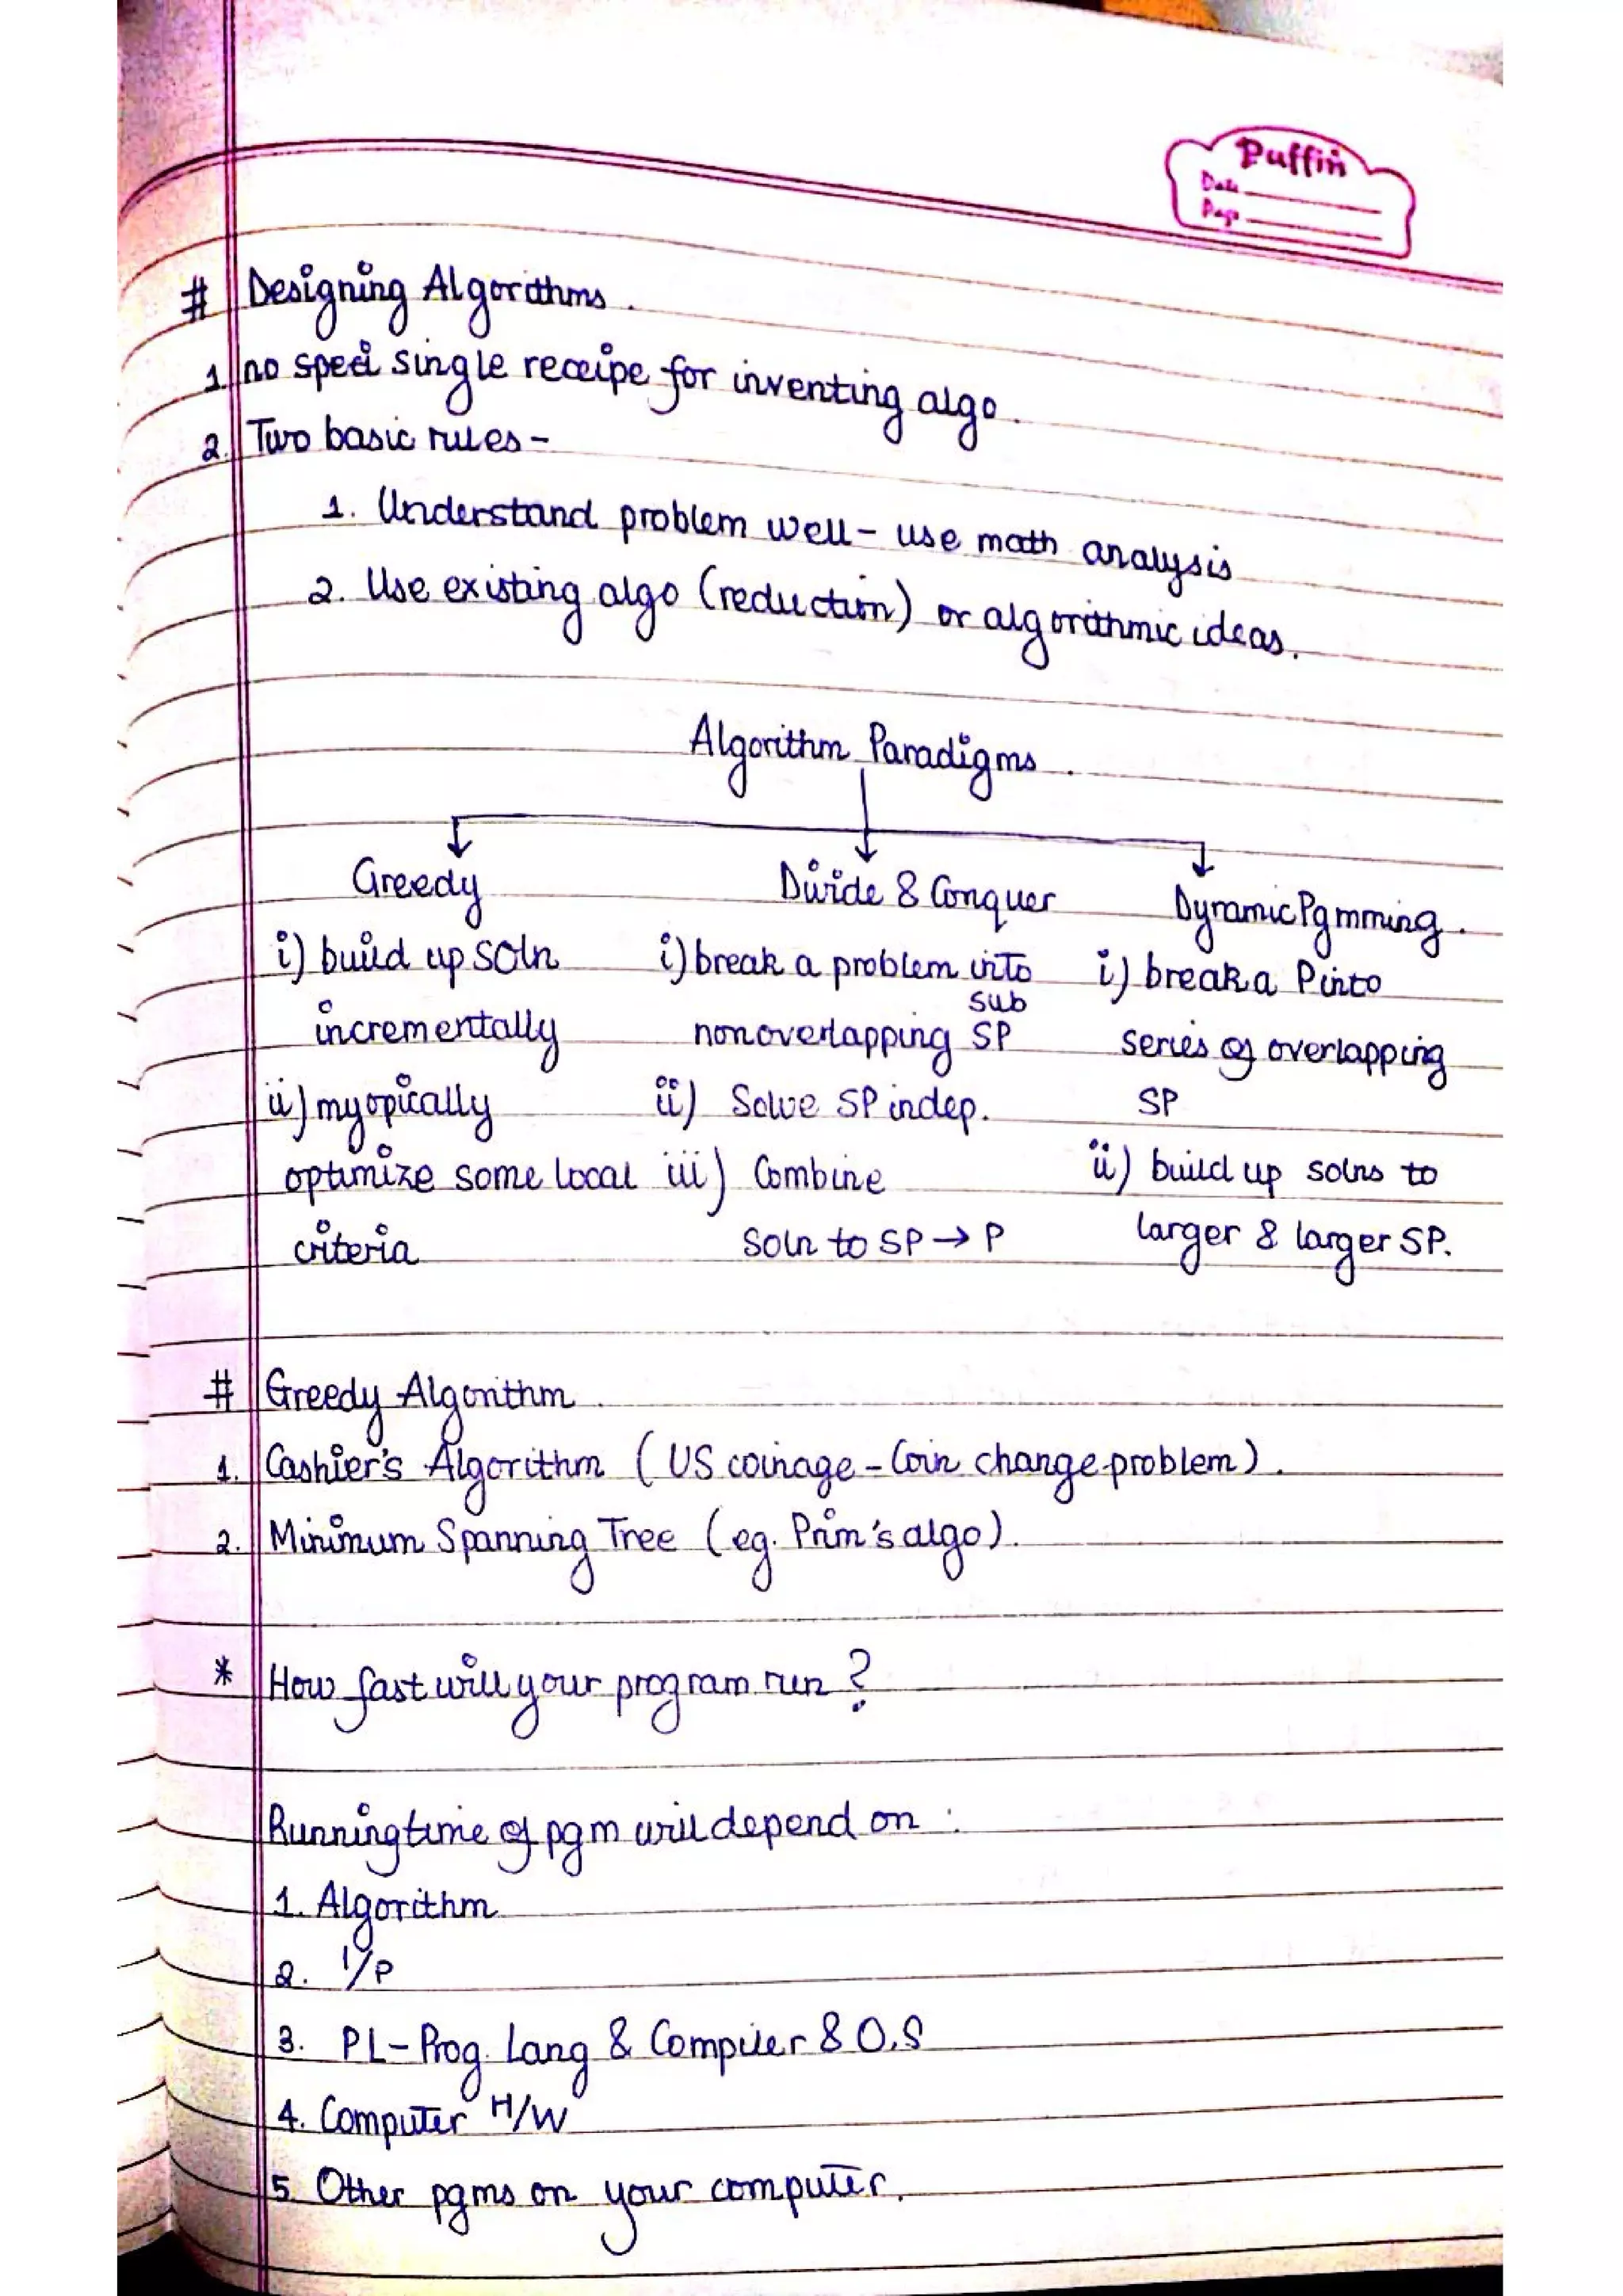 Puffin
Date
Page
# Designing Algorithms.
1. no speci single receipe for inventing algo.
2. Two basic rules -
1. Understand problem well - use math analysis
2. Use existing algo (reduction) or algorithmic ideas.
Algorithm Paradigms.
Greedy
i) build up soln
incrementally
ii) myopically
optimize some local
criteria
Divide & Conquer
i) break a problem into
sub
nonoverlapping SP
ii) Solve SP indep.
iii) Combine
Soln to SP → P
Dynamic Pgmming.
i) break a P into
series of overlapping
SP
ii) build up solns to
larger & larger SP.
# Greedy Algorithm.
1. Cashier's Algorithm (US coinage - Coin change problem).
2. Minimum Spanning Tree (eg. Prim's algo).
* How fast will your program run?
Running time of pgm will depend on :
1. Algorithm
2. I/P
3. PL - Prog. Lang & Compiler & O.S
4. Computer H/W
5. Other pgms on your computer.